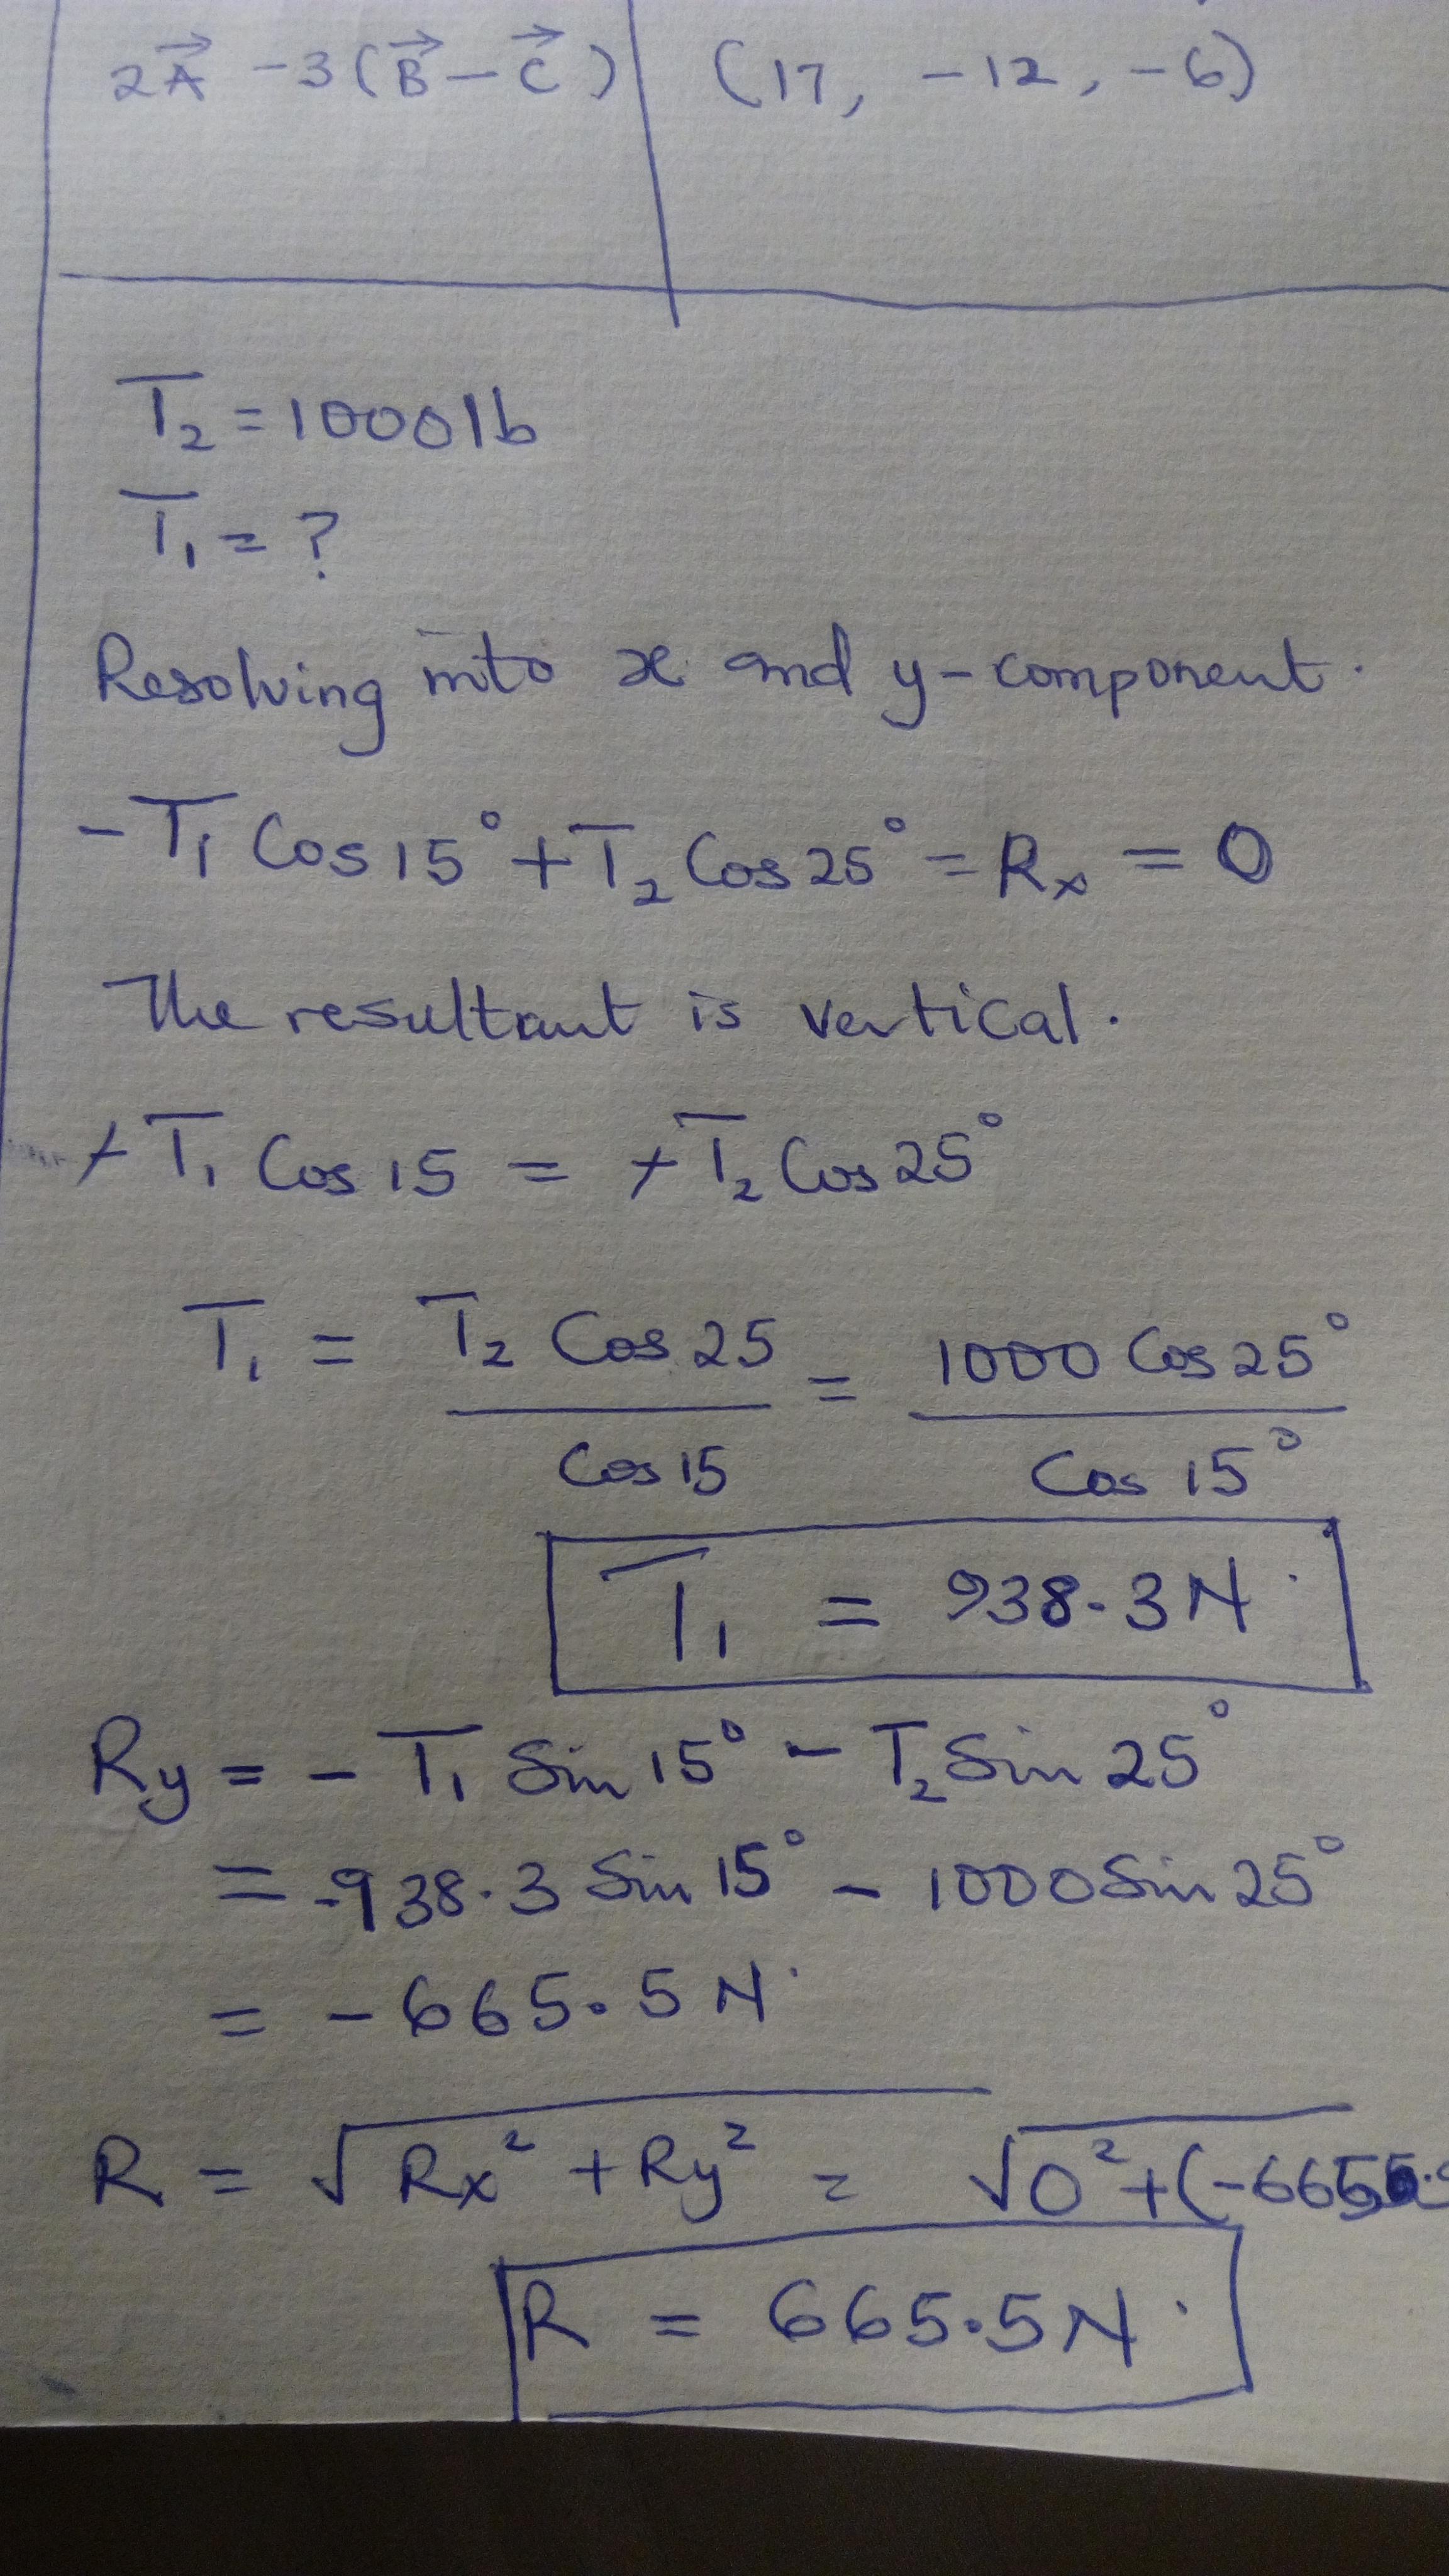 2A⃗ -3(B⃗-C⃗) (17, -12, -6)
T₂ = 1000lb
T₁ = ?
Resolving into x and y-component.
-T₁ Cos15° + T₂ Cos25° = Rx = 0
The resultant is vertical.
+T₁ Cos 15 = +T₂ Cos25°
T₁ = T₂ Cos 25 / Cos 15 = 1000 Cos25° / Cos 15°
T₁ = 938.3N
Ry = -T₁ Sin 15° - T₂ Sin 25°
= -938.3 Sin 15° - 1000Sin 25°
= -665.5N
R = √Rx² + Ry² = √0² + (-665.5
R = 665.5N